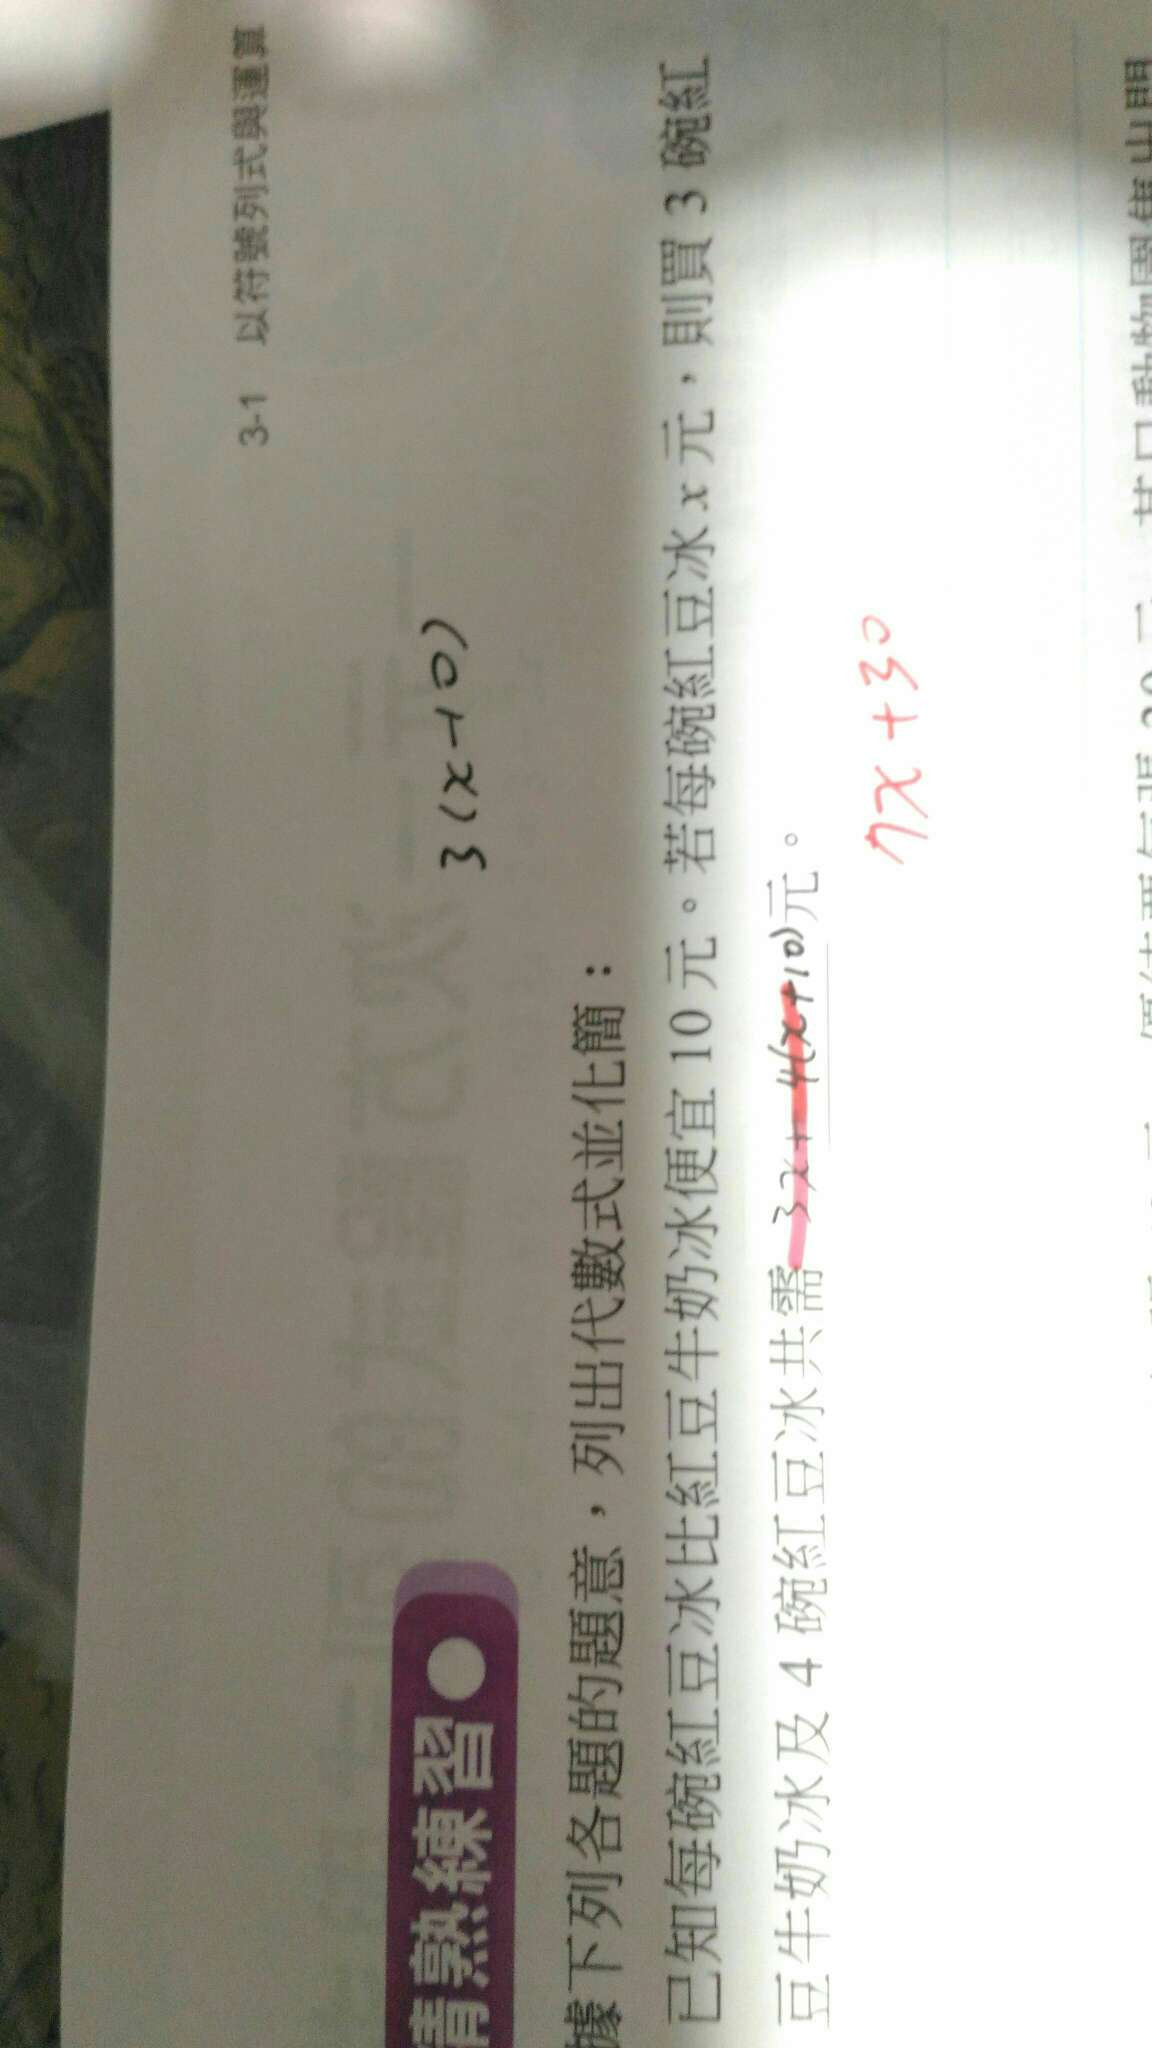 3-1 以符號列式與運算
3(x+10)
精熟練習
據下列各題的題意，列出代數式並化簡：
已知每碗紅豆冰比紅豆牛奶冰便宜 10 元。若每碗紅豆冰 x 元，則買 3 碗紅
豆牛奶冰及 4 碗紅豆冰共需 3x+4(x+10) 元。
7x+30